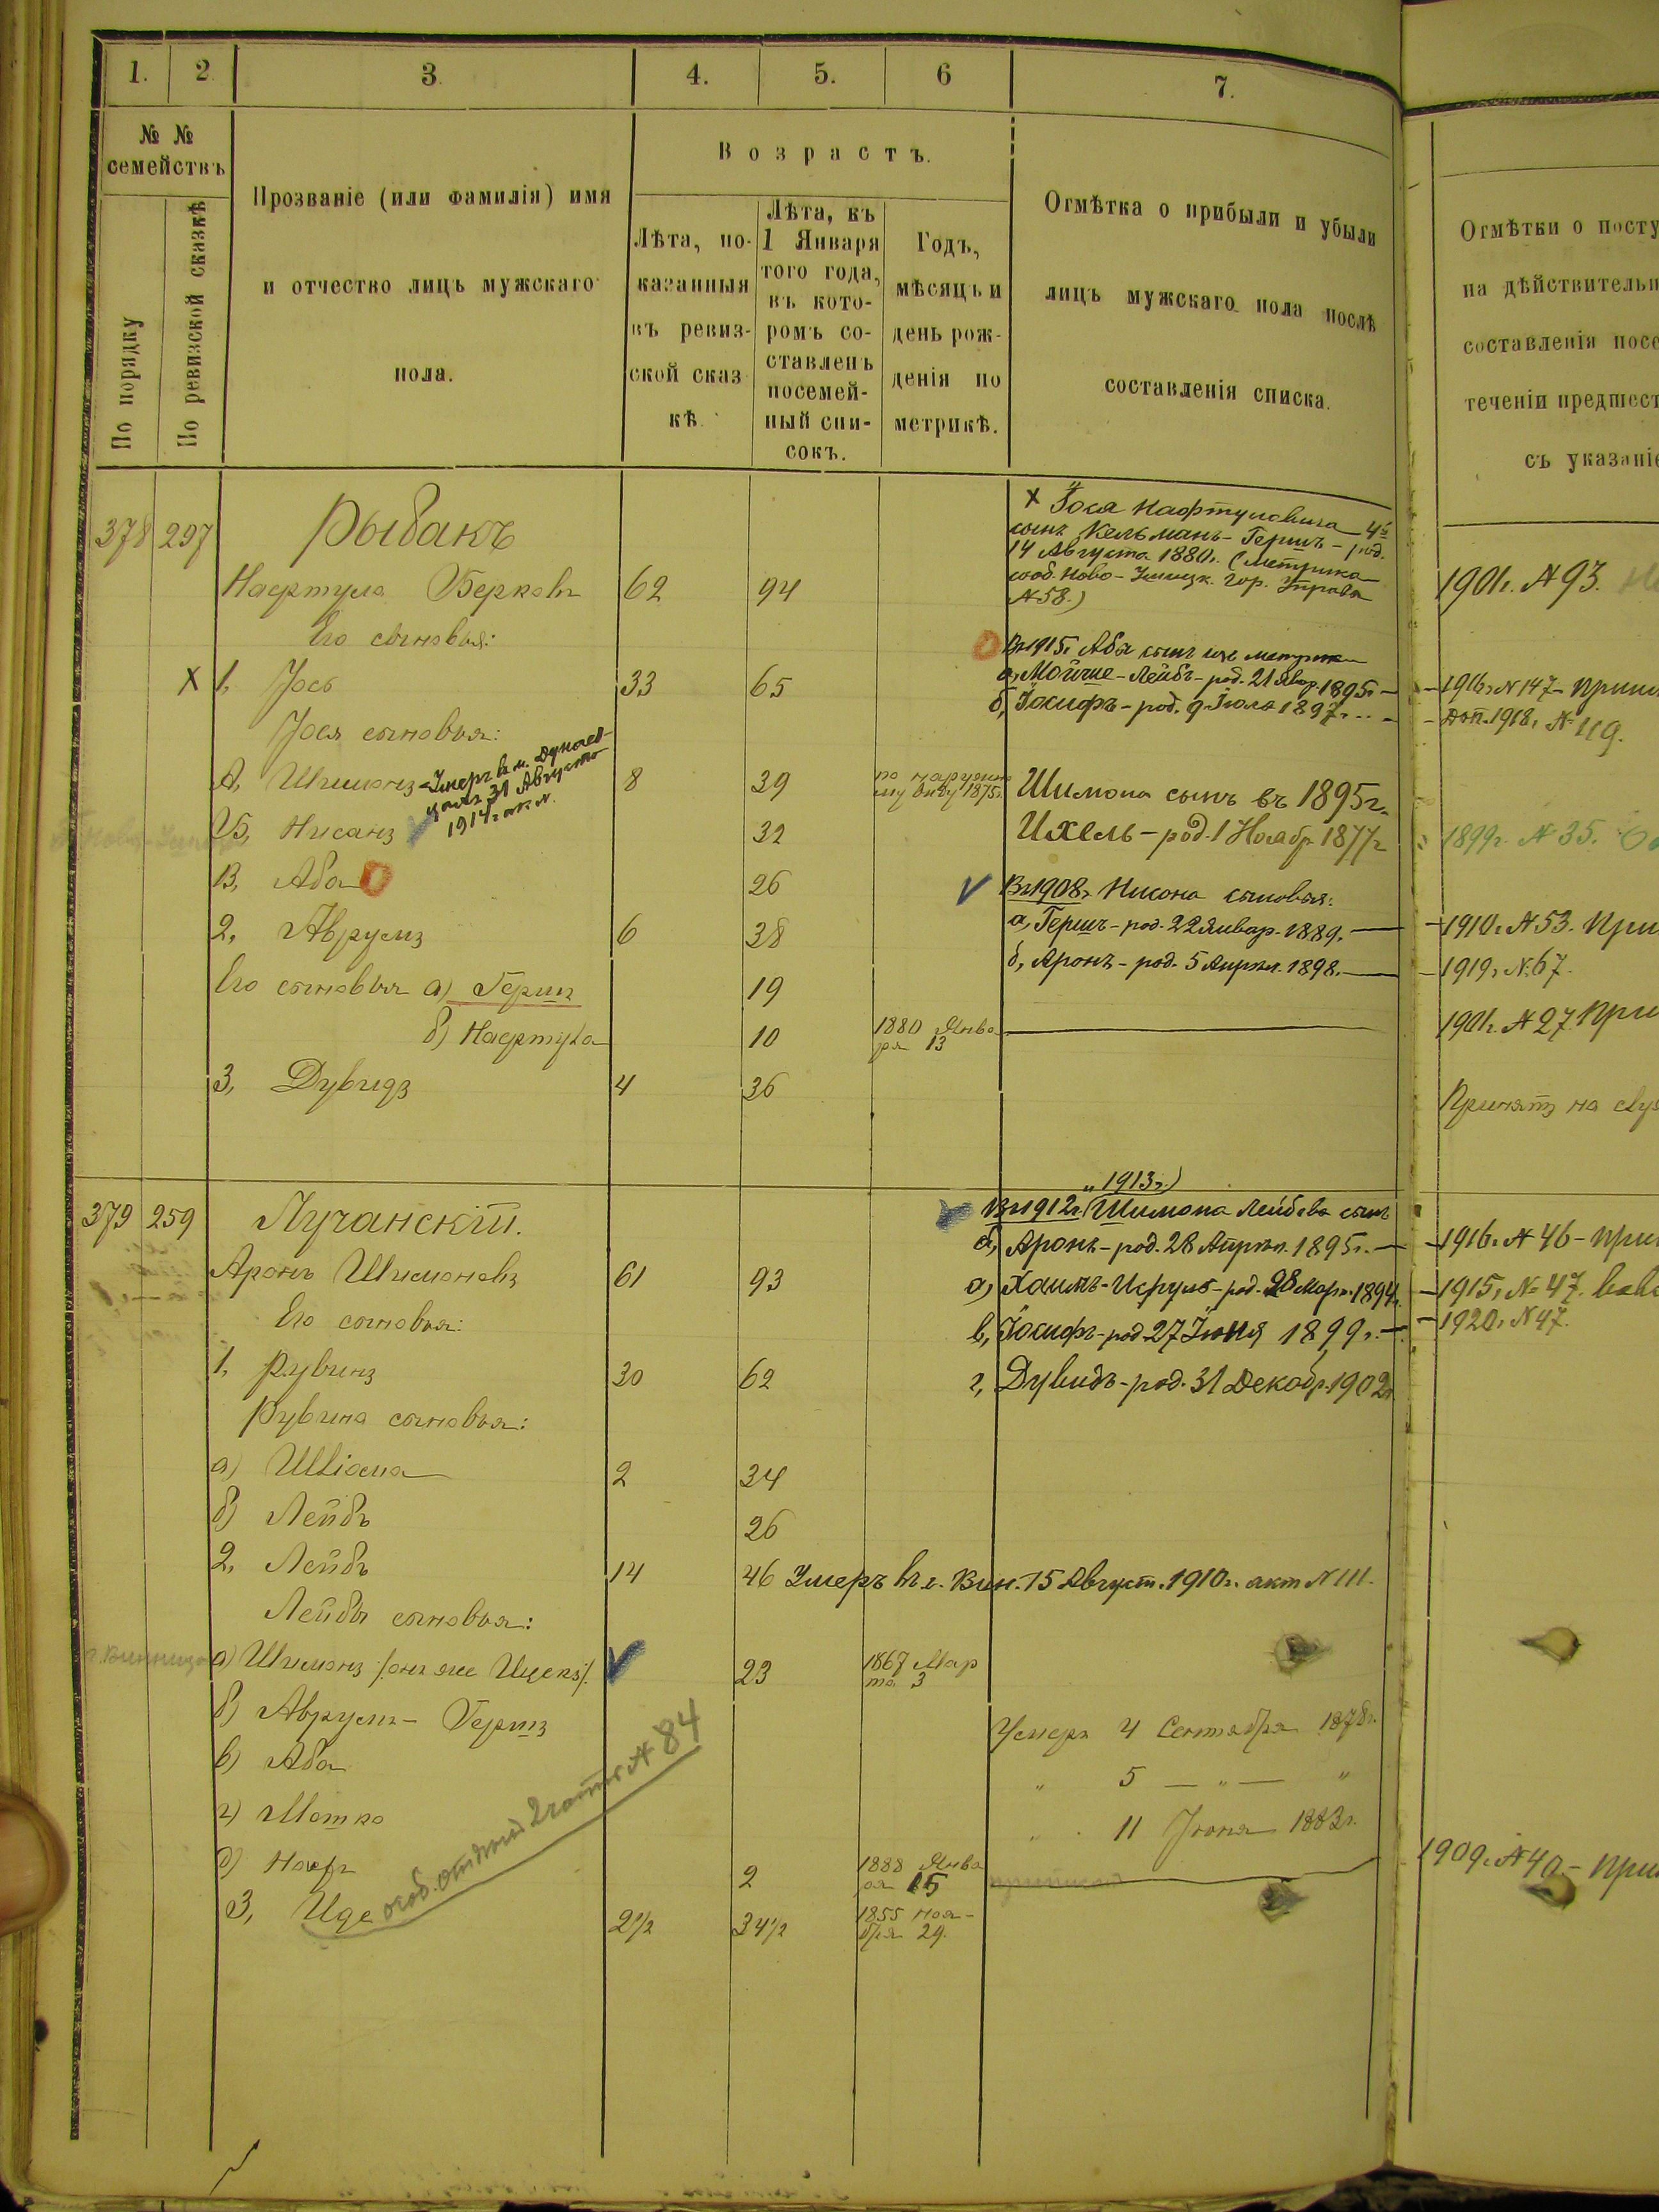 1. 2 3 4. 5. 6 7.
№ № семействъ
По порядку
По ревизской сказкѣ
Прозваніе (или фамилія) имя
и отчество лицъ мужскаго
пола.
Возрастъ.
Лѣта, по-
казанныя
въ ревиз-
ской сказ
кѣ.
Лѣта, къ
1 Января
того года,
въ кото-
ромъ со-
ставленъ
посемей-
ный спи-
сокъ.
Годъ,
мѣсяцъ и
день рож-
денія по
метрикѣ.
Отмѣтка о прибыли и убыли
лицъ мужскаго пола послѣ
составленія списка.
Отмѣтки о посту
на дѣйствительн
составленія посе
теченіи предшест
съ указаніе
378 297 Рыбакъ
Нафтула Берковъ 62 94
Его сыновья:
х 1, Іось 33 65
Іося сыновья:
А, Шимонъ 8 39
Умеръ въ м. Дунаев-
цахъ 31 Августа
1914 г. акт N.
Б, Нисанъ 32
В, Аба 26
2, Аврумъ 6 38
Его сыновья а) Гершъ 19
б) Нафтула 10 1880 Янва
ря 13
3, Дувидъ 4 36
х Іося Нафтуловича 4й
сынъ Кельманъ-Гершъ - род.
14 Августа 1880 г. (метрика
сооб. Ново-Ушицк. Гор. Управа
№58.)
Въ 1915 г. Аба сынъ
а, Мойше-Лейбъ - род. 21 Янвр 1895 г. -
б, Іосифъ - род. 9 Іюля 1897 г. -
Шимона сынъ въ 1895 г.
Ихель - род. 1 Ноябр 1877 г
Въ 1908 г. Нисона сыновья:
а, Гершъ - род. 22 Январ. 1889. -
б, Аронъ - род. 5 Апрѣл. 1898. -
1901 г. №93.
1916 г. N 147 - Прин
Доп. 1918 г. № 119.
1899 г. № 35.
1910 г. №53. При
1919 г. №67.
1901 г. №27. При
Принятъ на служ
379 259 Лучанскій.
Аронъ Шимоновъ 61 93
Его сыновья:
1, Рувинъ 30 62
Рувина сыновья:
а) Шліома 2 34
б) Лейбъ 26
2, Лейбъ 14 46 Умеръ въ г. Вин. 15 Август. 1910 г. акт N 111.
Лейбы сыновья:
г. Винница а) Шимонъ /онъ же Ицекъ/. 23 1867 Мар
та 3
б) Аврумъ-Гершъ Умеръ 4 Сентября 1878 г.
в) Аба " 5 — " — "
г) Мотко " 11 Іюня 1883 г.
д) 2 1888 Янва
ря 15
3, Ицe 2½ 34½ 1855 ноя-
бря 29.
№ 84
" 1913 г.)
Въ 1912 г. (Шимона Лейбова сын
б) Аронъ - род. 28 Апрѣл. 1895 г. -
а) Хаимъ-Исруль - род. 28 Март. 1894 г.
в, Іосифъ - род. 27 Іюня 1899 г. -
г, Дувидъ - род. 31 Декабр. 1902 г
1916 г. № 46 - При
1915 г. № 47.
1920 г. N 47.
1909 г. №40 - При